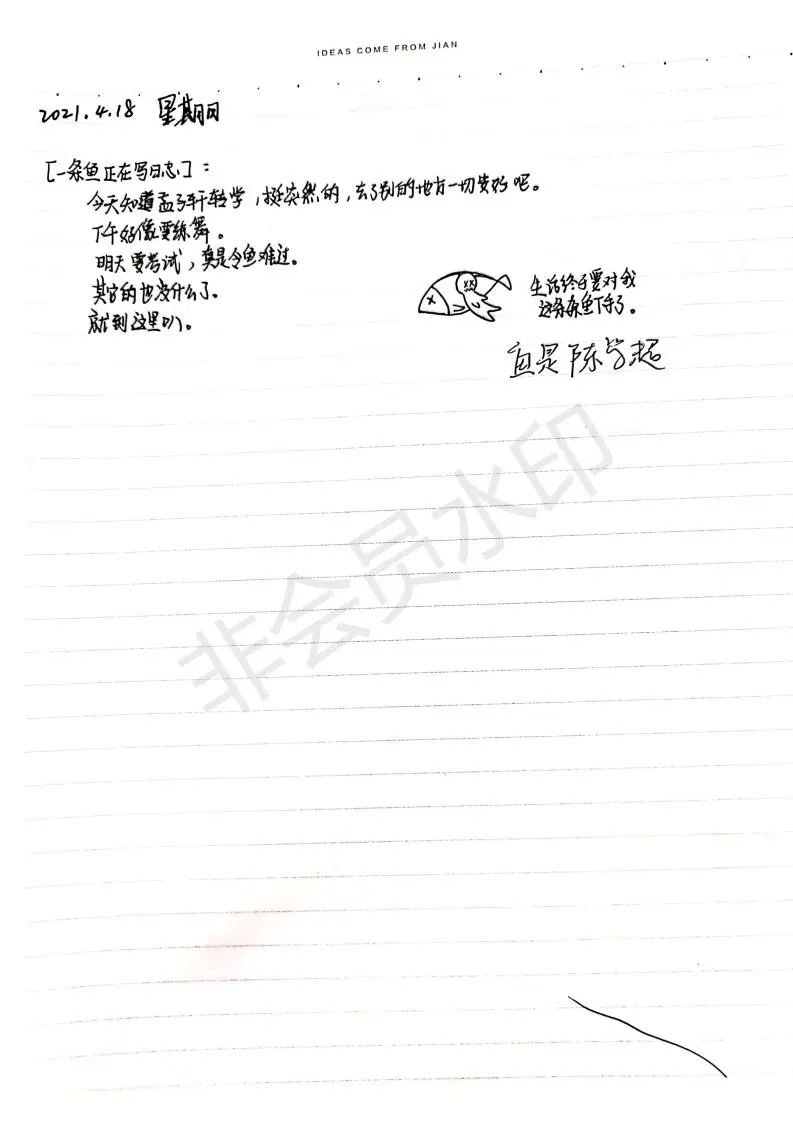 IDEAS COME FROM JIAN
2021.4.18 星期日
[一条鱼正在写日志]：
今天知道孟子轩转学，挺突然的，去了别的地方一切安好吧。
下午好像要练舞。
明天要考试，真是令鱼难过。
其它的也没什么了。
就到这里叭。
生活终于要对我
这条鱼下手了。
陈学超
非会员水印